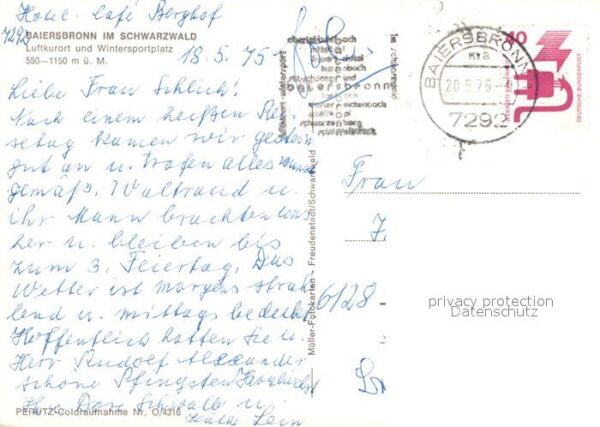 Hotel-Café Berghof
7292 BAIERSBRONN IM SCHWARZWALD
Luftkurort und Wintersportplatz
550—1150 m ü. M.
18.5.75-
Liebe Frau Schlich!
Nach einem heißen Rei-
setag kamen wir gestern
gut an u. trafen alles wunsch
gemäß. Waltraud u.
ihr Mann brachten uns
her u. bleiben bis
zum 3. Feiertag. Das
Wetter ist morgens strah
lend u. mittags bedeckt
Hoffentlich hatten Sie u.
Herr Rudolf Alexander
schöne Pfingsten. Herzlichst
Ihre
PERUTZ-Coloraufnahme Nr. O/4316
Müller-Fotokarten - Freudenstadt/Schwarzwald
baiersbronn
BAIERSBRONN
ma
20.5.75
7292
40
DEUTSCHE BUNDESPOST
Frau
6128
privacy protection
Datenschutz